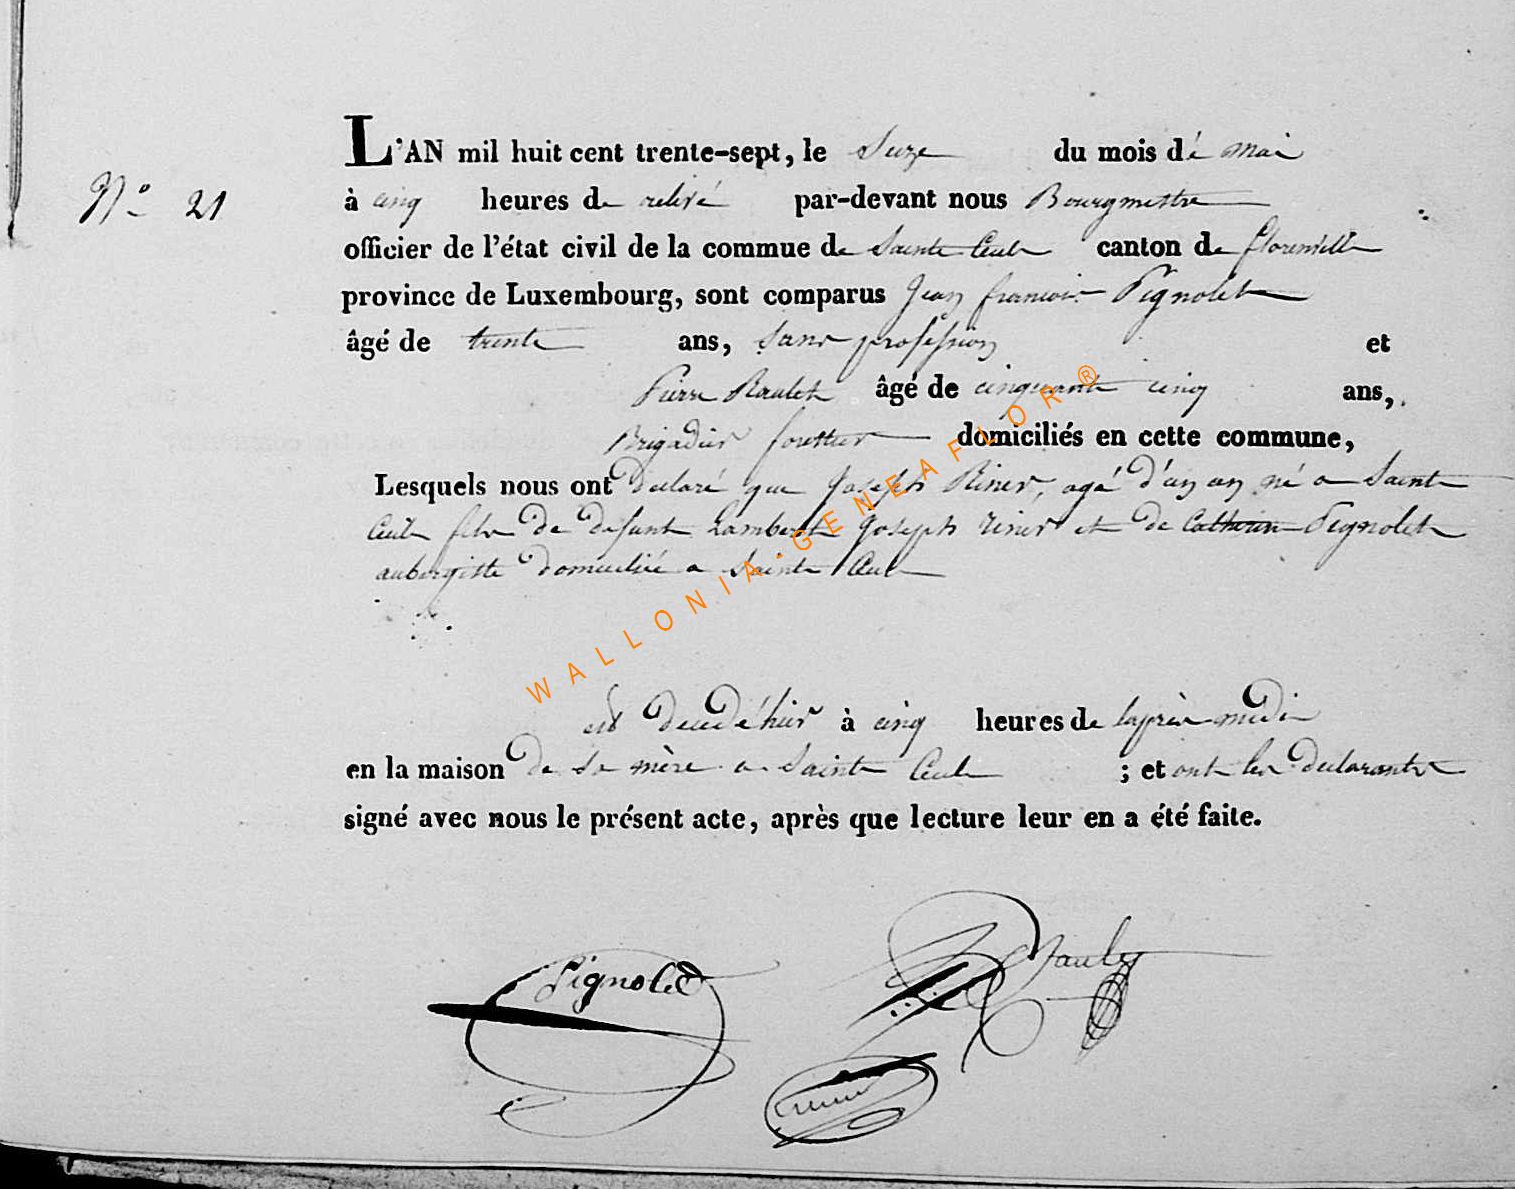 L'AN mil huit cent trente-sept, le seize du mois de mai
N° 21
à cinq heures de relevé par-devant nous Bourgmestre
officier de l'état civil de la commue de Sainte Cecile canton de florenville
province de Luxembourg, sont comparus Jean francois Pignolet
âgé de trente ans, sans profession et
Pierre Raulet âgé de cinquante cinq ans,
Brigadier forettier domiciliés en cette commune,
Lesquels nous ont declaré que Joseph Riner, agé d'un an né a Sainte
Cecile fils de defunt Lambert Joseph riner et de Catherine Pignolet
aubergiste domicilié a Sainte Cecile
est decedé hier à cinq heures de laprès midi
en la maison de sa mère a Sainte Cecile ; et ont les declarants
signé avec nous le présent acte, après que lecture leur en a été faite.
Pignolet Raulet
WALLONIA.GENEAFLOR®